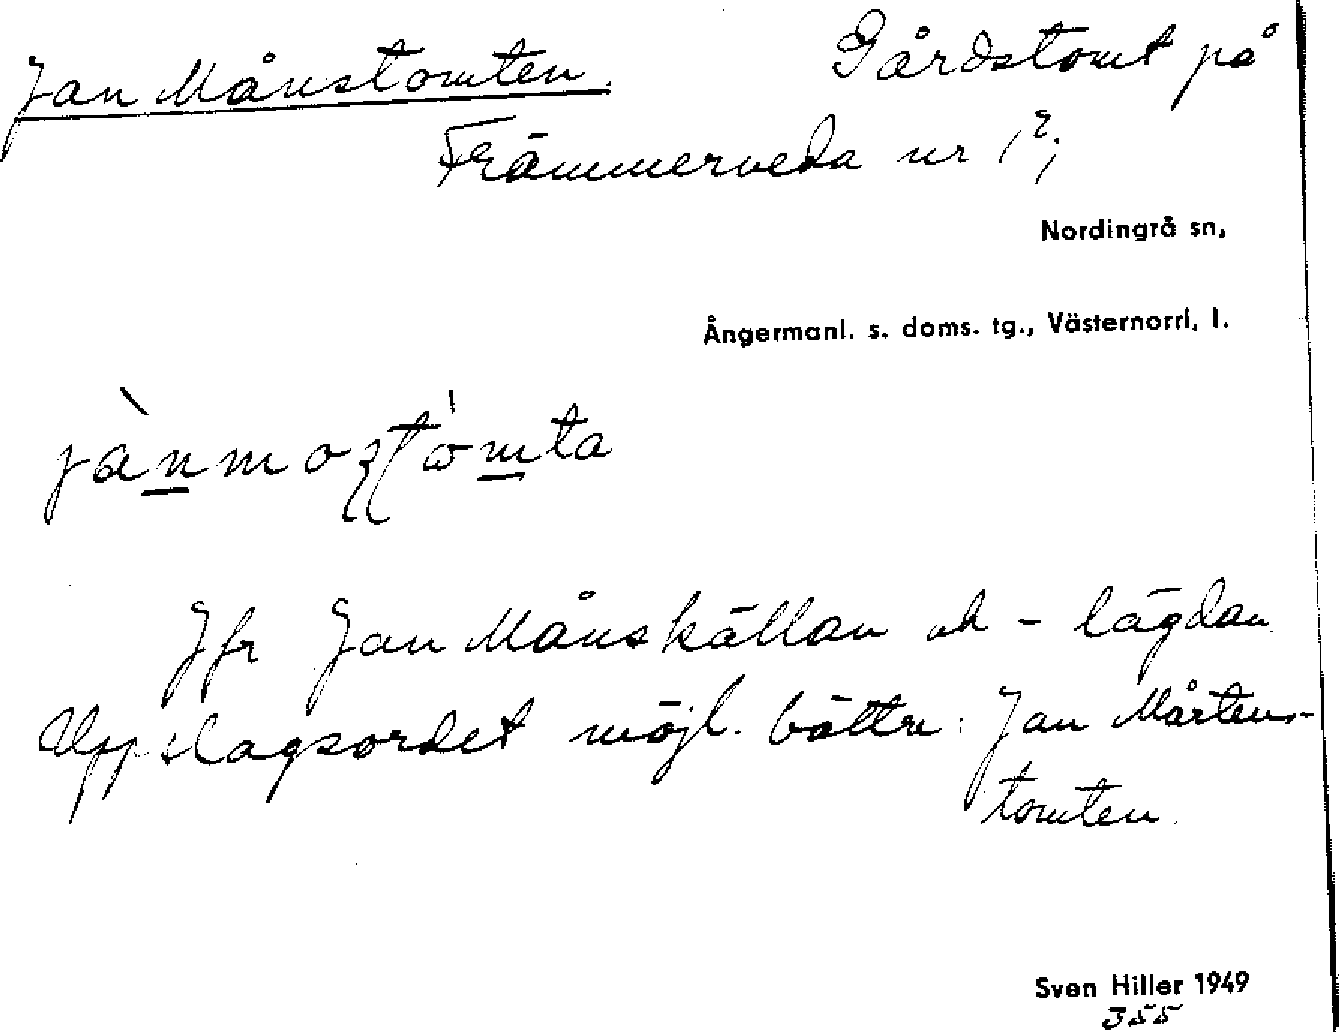 Jan Månstomten. Gårdstomt på
Främmerveda nr 1²;
Nordingrå sn,
Ångermanl. s. doms. tg., Västernorrl. l.
Jfr Jan Månskällan och - lägdan.
Uppslagsordet möjl. bättre: Jan Mårtens-
tomten.
Sven Hiller 1949
355